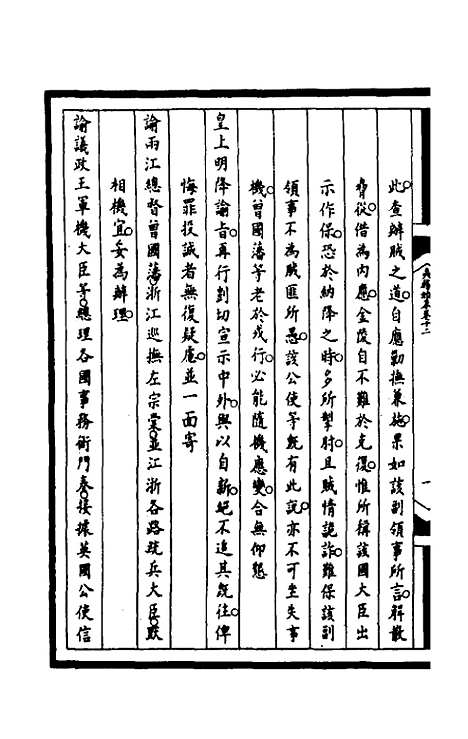 此查辦賊之道自應勦撫兼施果如該副領事所言解散
脅從借為內應金陵自不難於克復惟所稱該國大臣出
示作保恐於納降之時多所掣肘且賊情詭詐難保該副
領事不為賊匪所愚該公使等旣有此說亦不可坐失事
機曾國藩等老於戎行必能隨機應變合無仰懇
皇上明降諭旨再行剴切宣示中外與以自新絕不追其旣往俾
悔罪投誠者無復疑慮並一面寄
諭兩江總督曾國藩浙江巡撫左宗棠並江浙各路統兵大臣
相機宜妥為辦理
諭議政王軍機大臣等總理各國事務衙門奏接據英國公使信